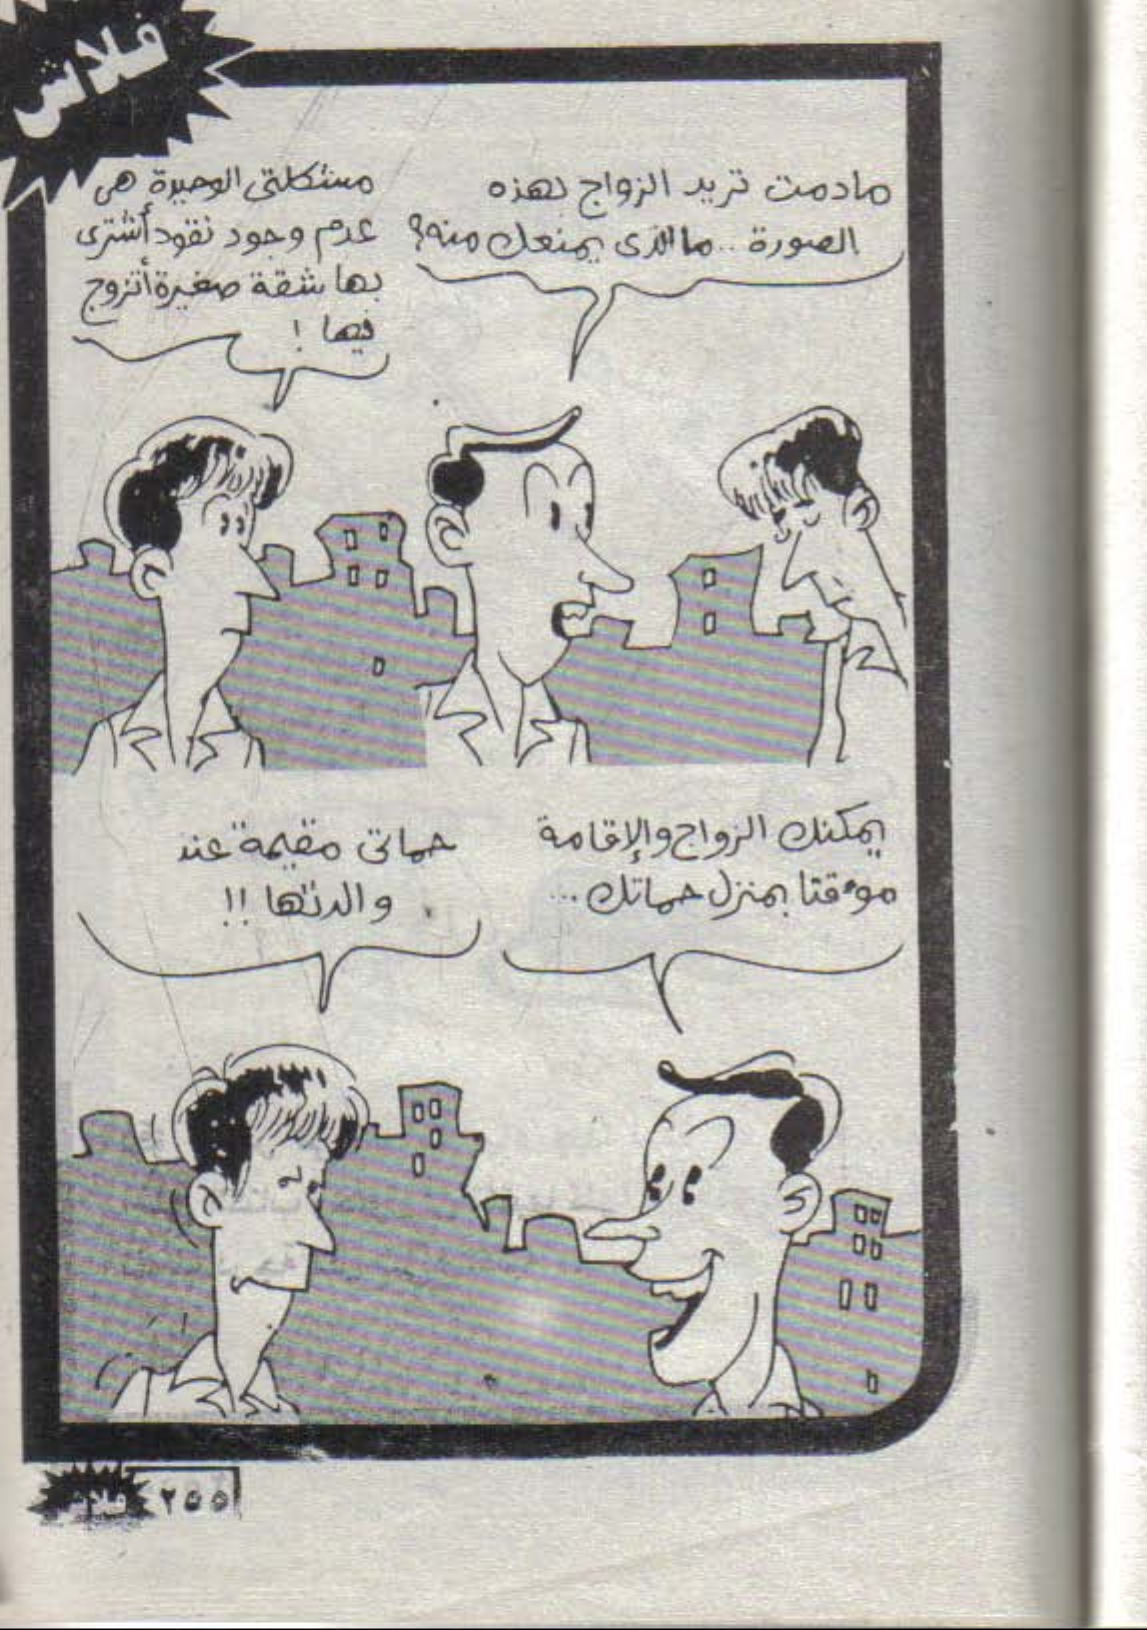 فلاش
مادمت تريد الزواج بهذه
الصورة .. ما الذى يمنعك منه؟
مشكلتى الوحيدة هى
عدم وجود نقود أشترى
بها شقة صغيرة أتزوج
فيها !
يمكنك الزواج والإقامة
موءقتا بمنزل حماتك ...
حماتى مقيمة عند
والدتها !!
٢٥٥ فلاش